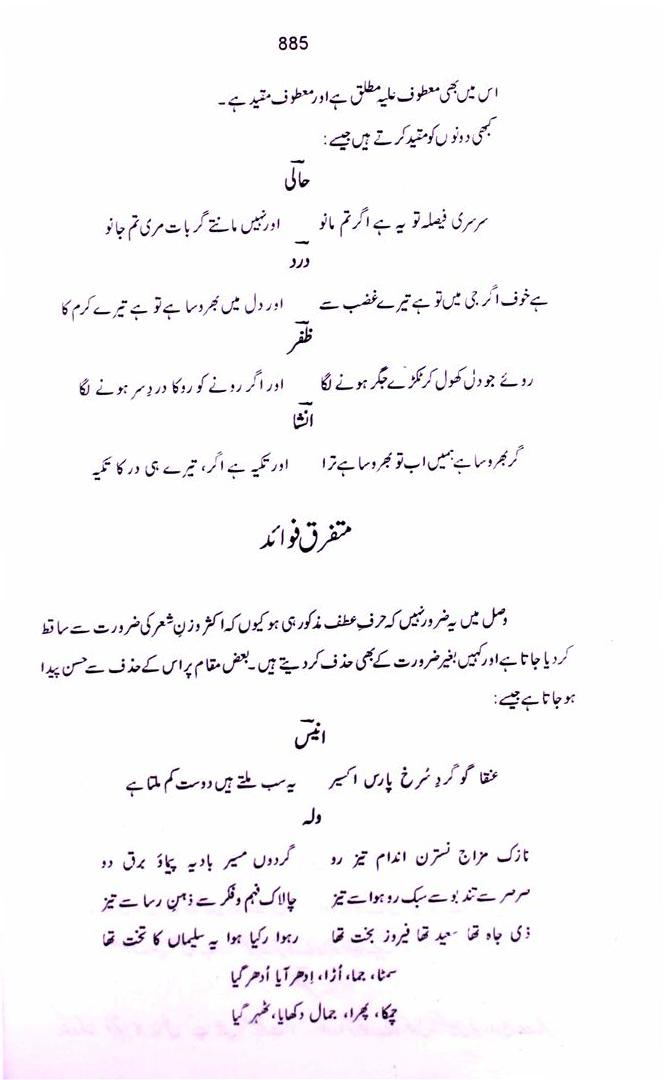 885
اس میں بھی معطوف علیہ مطلق ہے اور معطوف مقید ہے۔
کبھی دونوں کو مقید کرتے ہیں جیسے:
حالی
سرسری فیصلہ تو یہ ہے اگر تم مانو اور نہیں مانتے گر بات مری تم جانو
درد
ہے خوف اگر جی میں تو ہے تیرے غضب سے اور دل میں بھروسا ہے تو ہے تیرے کرم کا
ظفر
روئے جو دل کھول کر ٹکڑے جگر ہونے لگا اور اگر رونے کو روکا دردِ سر ہونے لگا
انشا
گر بھروسا ہے ہمیں اب تو بھروسا ہے ترا اور تکیہ ہے اگر، تیرے ہی در کا تکیہ
متفرق فوائد
وصل میں یہ ضرور نہیں کہ حرفِ عطف مذکور ہی ہو کیوں کہ اکثر وزنِ شعر کی ضرورت سے ساقط
کر دیا جاتا ہے اور کہیں بغیر ضرورت کے بھی حذف کر دیتے ہیں۔ بعض مقام پر اس کے حذف سے حسن پیدا
ہو جاتا ہے جیسے:
انیس
عنقا گوگردِ سُرخ پارس اکسیر یہ سب ملتے ہیں دوست کم ملتا ہے
ولہ
نازک مزاج نسترن اندام تیز رو گردوں مسیر بادیہ پیماؤ برق دو
صرصر سے تند بو سے سبک رو ہوا سے تیز چالاک فہم و فکر سے ذہنِ رسا سے تیز
ذی جاہ تھا سعید تھا فیروز بخت تھا رہوا رکیا ہوا یہ سلیماں کا تخت تھا
سمٹا، جما، اُڑا، اِدھر آیا اُدھر گیا
چمکا، پھرا، جمال دکھایا، ٹھہر گیا